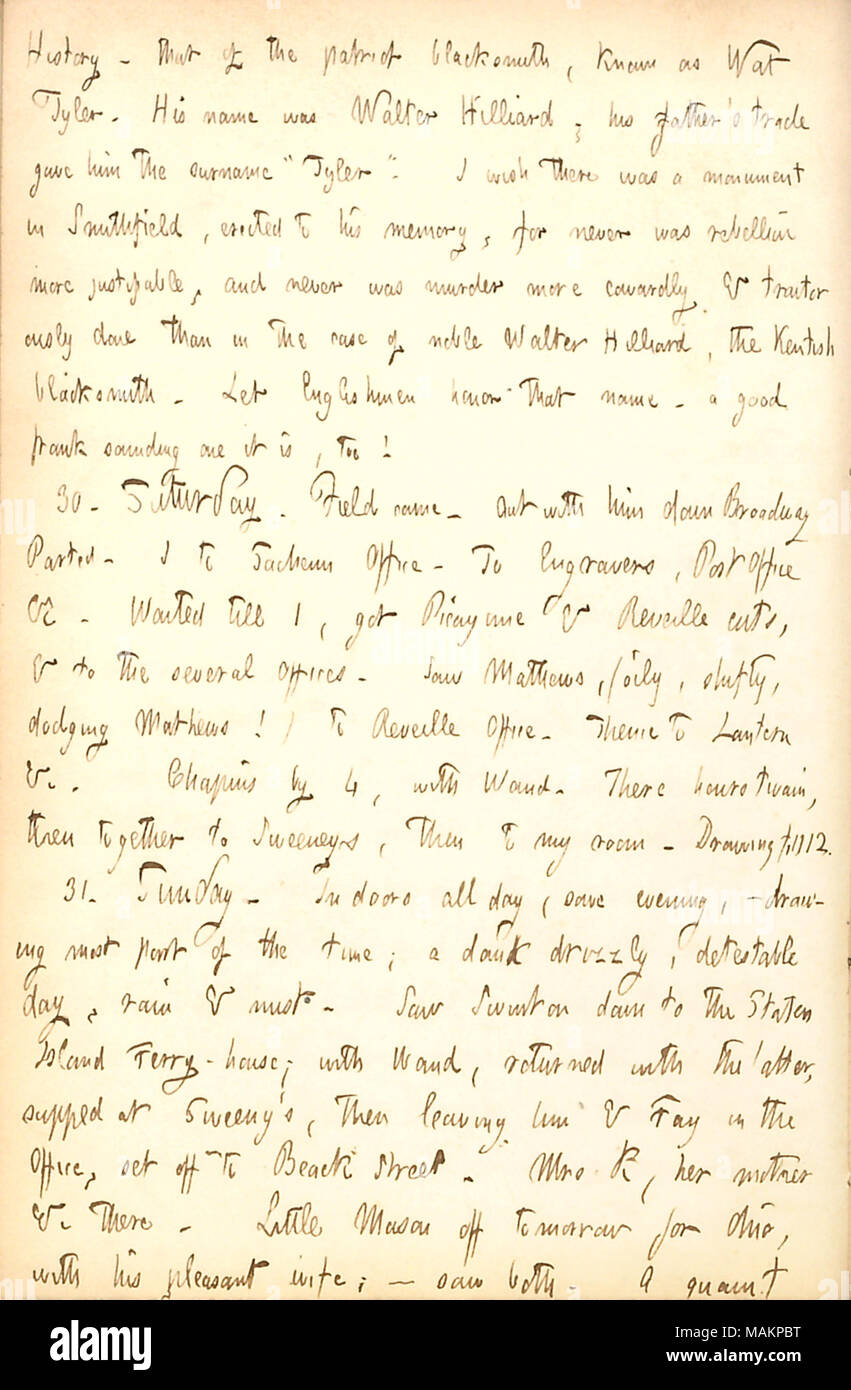 History - that of the patriot blacksmith, known as Wat
Tyler. His name was Walter Hilliard, his father's trade
gave him the surname "Tyler". I wish there was a monument
in Smithfield, erected to his memory, for never was rebellion
more justifiable, and never was murder more cowardly & traitor
ously done than in the case of noble Walter Hilliard, the Kentish
blacksmith. Let Englishmen honor that name - a good
frank sounding one it is, too!
30. Saturday. Field came. Out with him down Broadway
Parted. I to Sachems Office. To Engravers, Post Office
&c. Waited till 1, got Picayune & Reveille cuts,
& to the several offices. Saw Mathews, (oily, shifty,
dodging Mathews!) to Reveille Office. Thence to Lantern
&c. Chapins by 4, with Waud. There hours twain,
then together to Sweeneys, then to my room - Drawing till 12.
31. Sunday. In doors all day, save evening, - draw-
ing most part of the time; a dank drizzly, detestable
day, rain & mist. Saw Swinton down to the Staten
Island Ferry-house; with Waud, returned with the latter,
supped at Sweeny's, then leaving him & Fay in the
Office, set off to Beach Street. Mrs K, her mother
&c there. Little Mason off tomorrow for Ohio,
with his pleasant wife; - saw both. A quaint
alamy
alamy stock photo
Image ID: MAKPBT
www.alamy.com